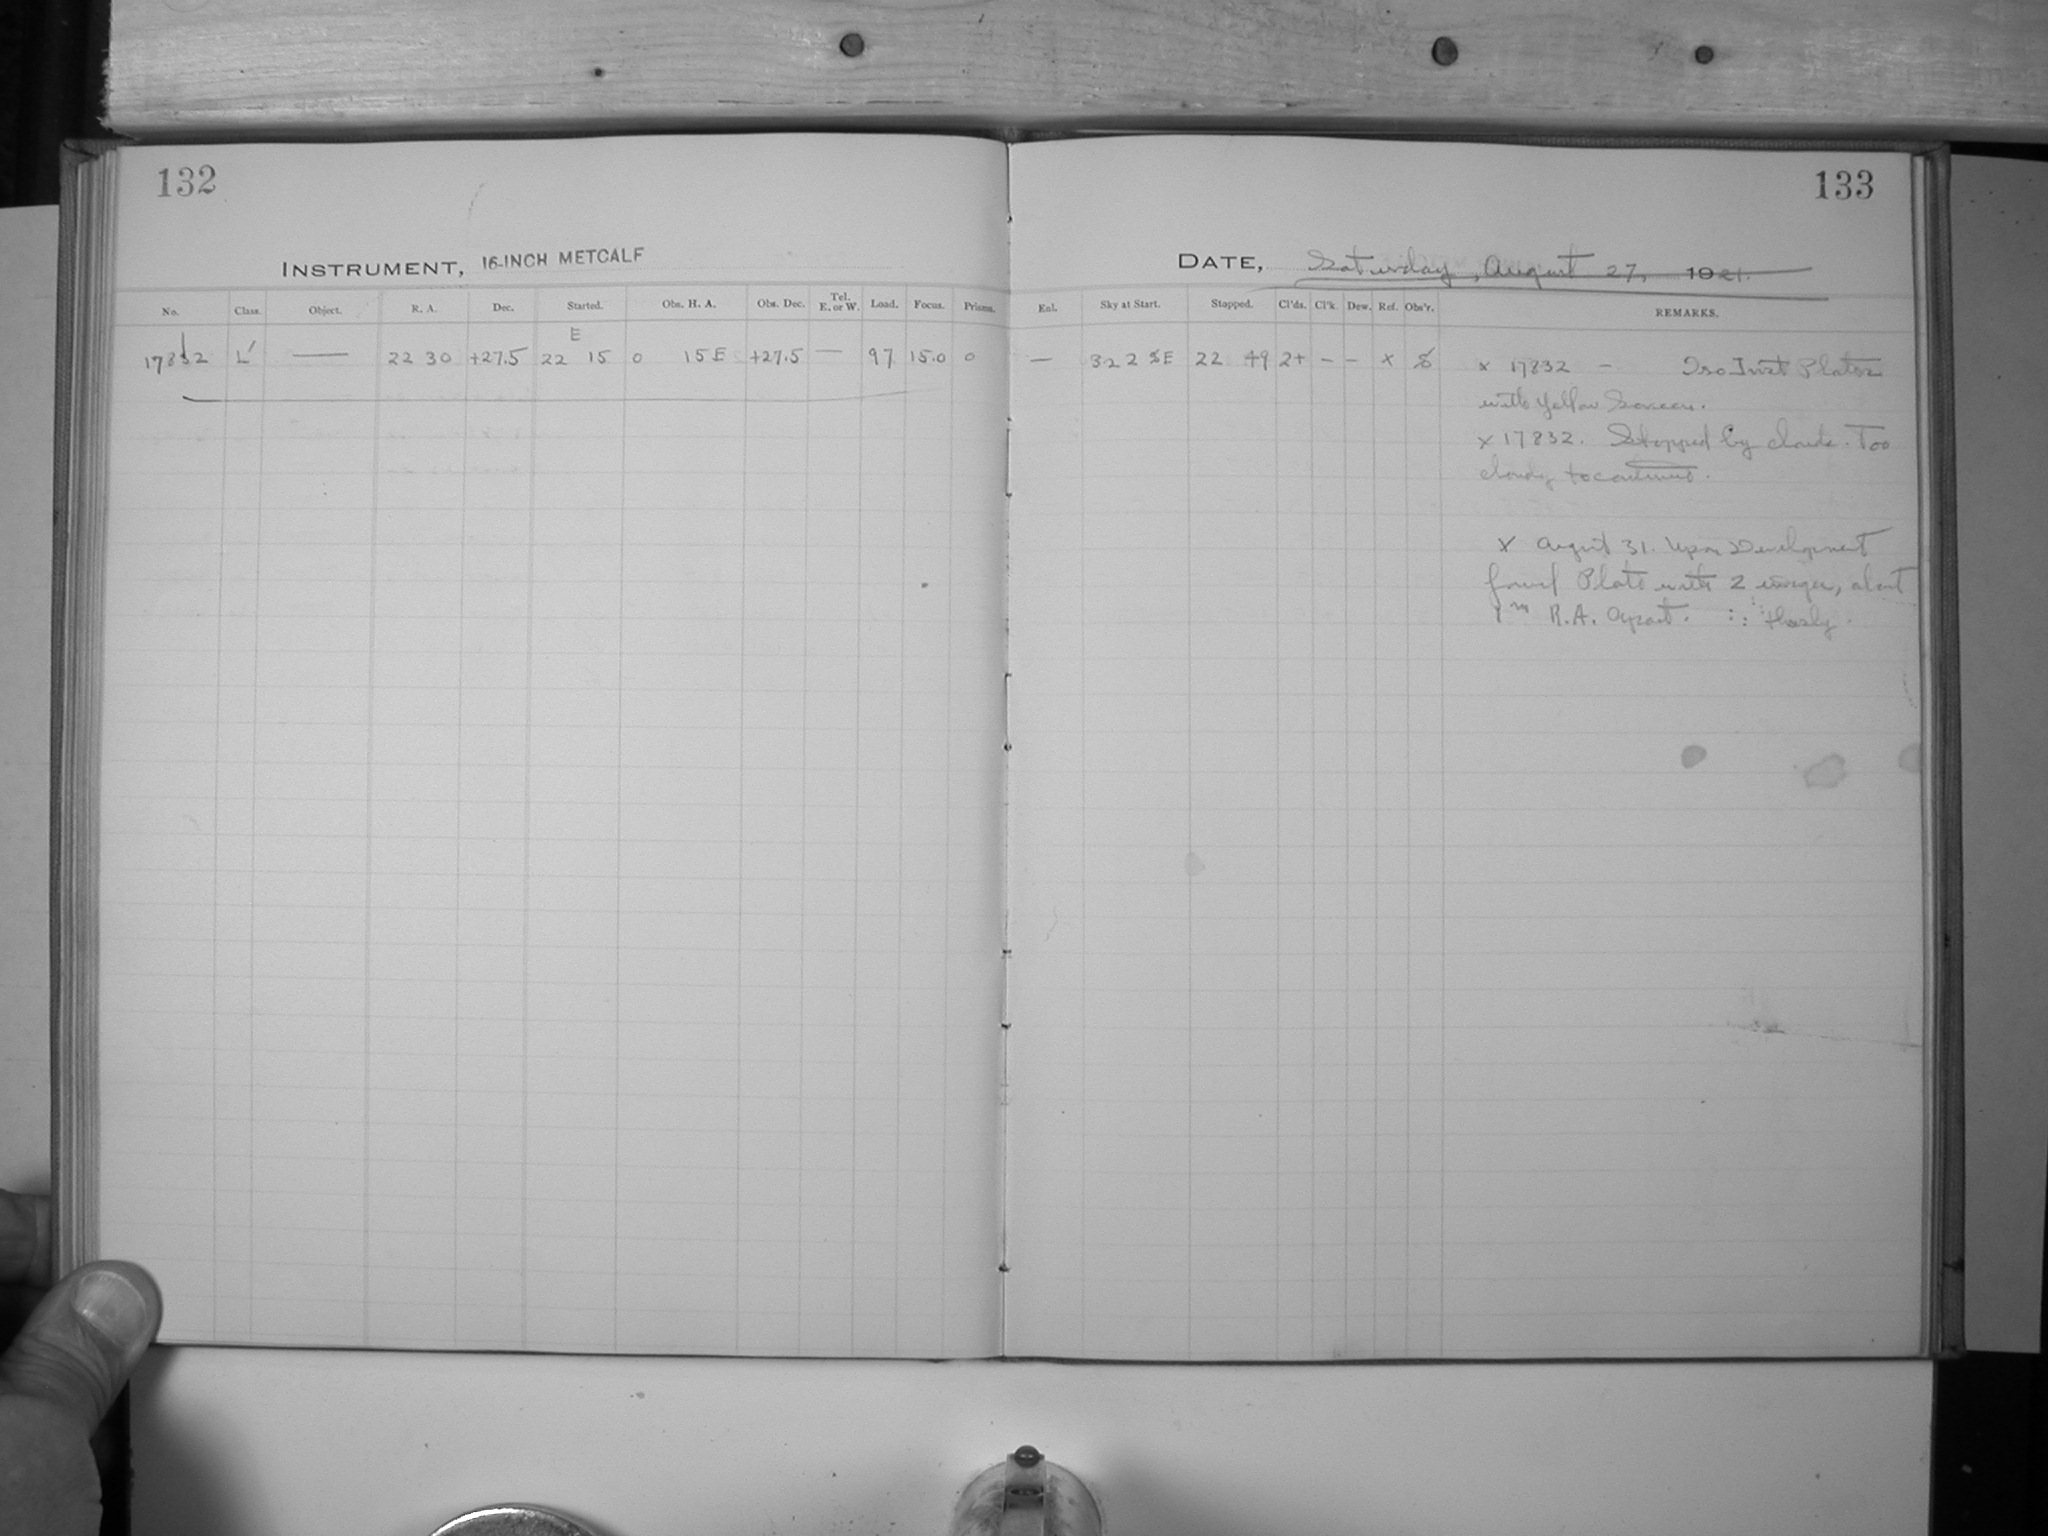 132
133
INSTRUMENT, 16-INCH METCALF
DATE, Saturday, August 27, 1921.
No. Class. Object. R. A. Dec. Started. Obs. H. A. Obs. Dec. Tel. E. or W. Load. Focus. Prisms. Enl. Sky at Start. Stopped. Cl'ds. Cl'k. Dew. Ref. Obs'r. REMARKS.
E
17832 L' — 22 30 +27.5 22 15 0 15 E +27.5 — 97 15.0 0 — 322 SE 22 49 2+ – – x
x 17832 – Iso Inst Plates
with Yellow Screen.
x 17832. Stopped by clouds. Too
cloudy to continue.
x August 31. Upon Development
found Plate with 2 images, about
1m R.A. Apart.